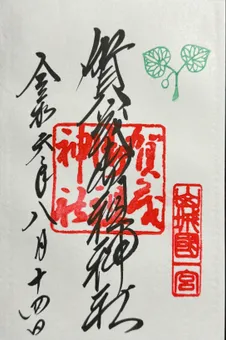 山城國
一宮
賀茂御祖神社
賀茂
御祖
神社
令和六年八月十四日